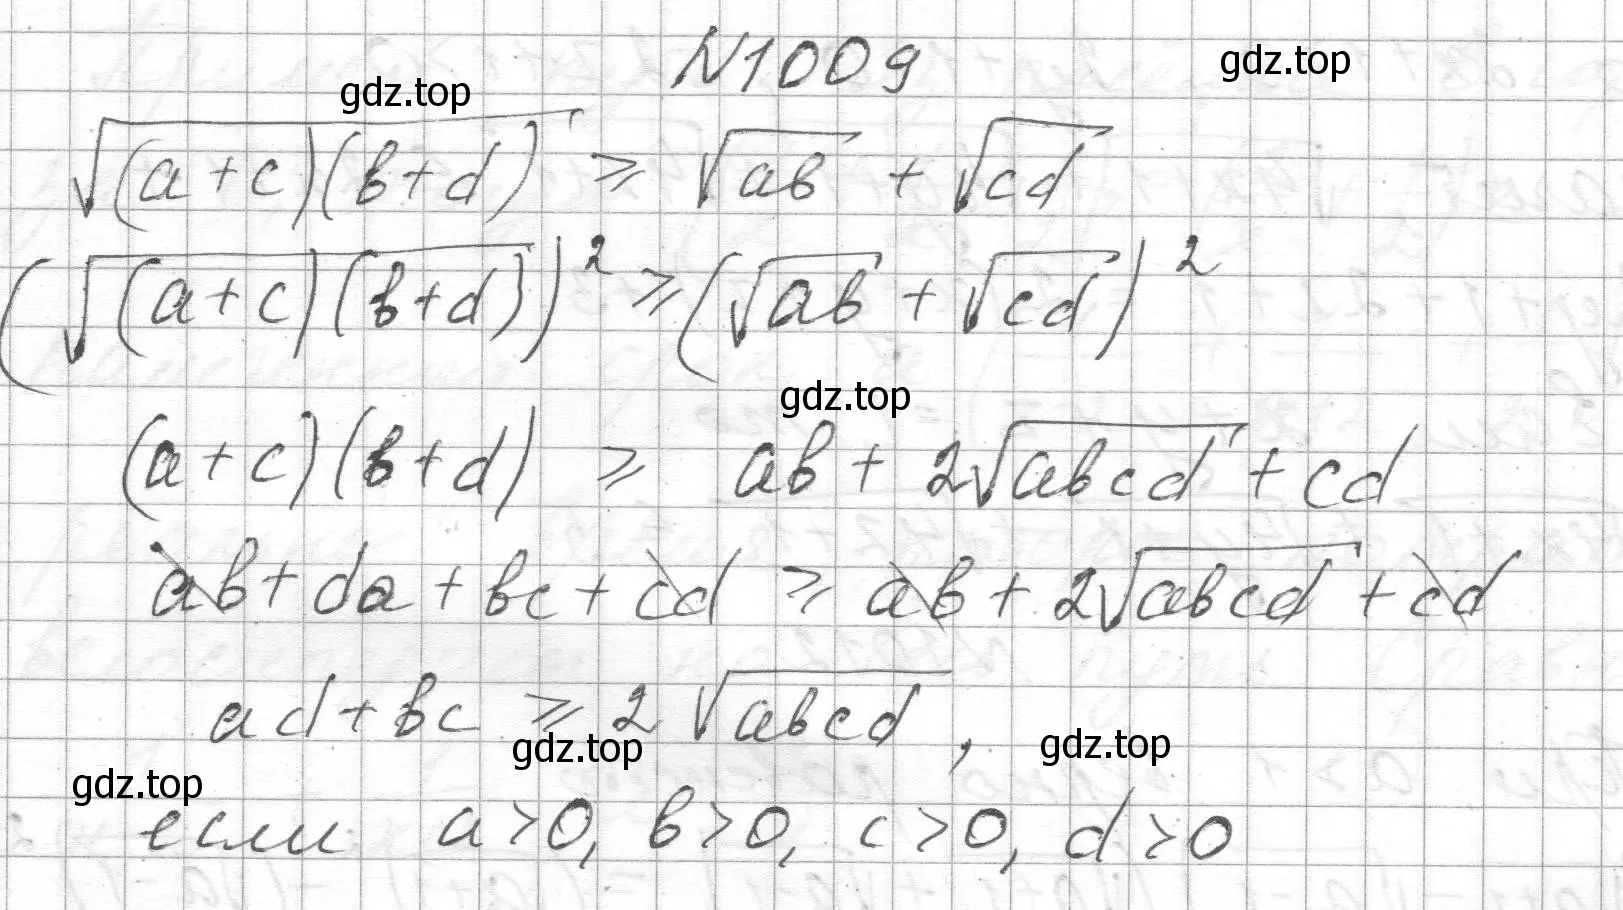 N1009
gdz.top
gdz.top
√(a+c)(b+d) ≥ √ab + √cd
(√(a+c)(b+d))² ≥ (√ab + √cd)²
gdz.top
(a+c)(b+d) ≥ ab + 2√abcd + cd
ab + da + bc + cd ≥ ab + 2√abcd + cd
ad + bc ≥ 2√abcd,
gdz.top
gdz.top
gdz.top
если a>0, b>0, c>0, d>0